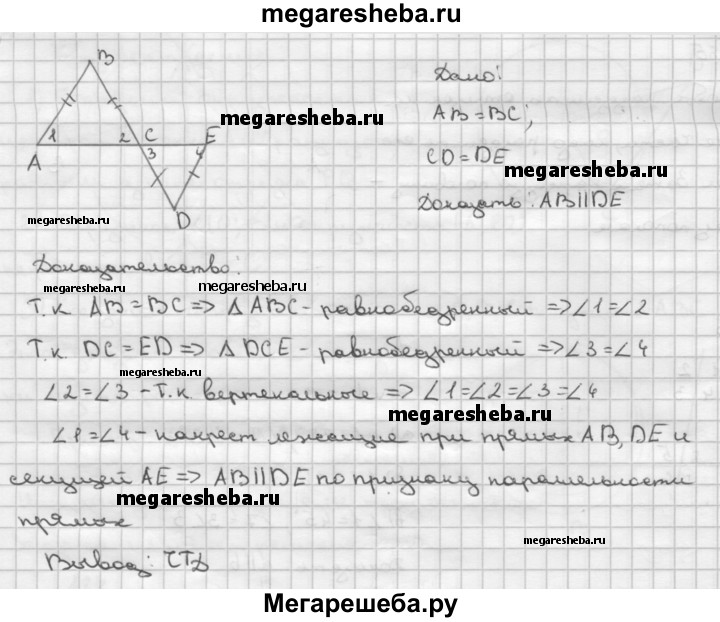 megaresheba.ru
B
Дано:
1 2 C E
megaresheba.ru
AB=BC;
A 3 4
CD=DE
megaresheba.ru
D
megaresheba.ru
Доказать: AB||DE
Доказательство:
megaresheba.ru megaresheba.ru
Т.к AB=BC => Δ ABC - равнобедренный => ∠1=∠2
Т.к DC=ED => Δ DCE - равнобедренный => ∠3=∠4
megaresheba.ru
∠2=∠3 - т.к вертекальные => ∠1=∠2=∠3=∠4
megaresheba.ru
∠1=∠4 - накрест лежащие при прямых AB, DE и
секущей AE => AB||DE по признаку паралельности
megaresheba.ru
прямых
megaresheba.ru
Вывод: ЧТД
Мегарешеба.ру